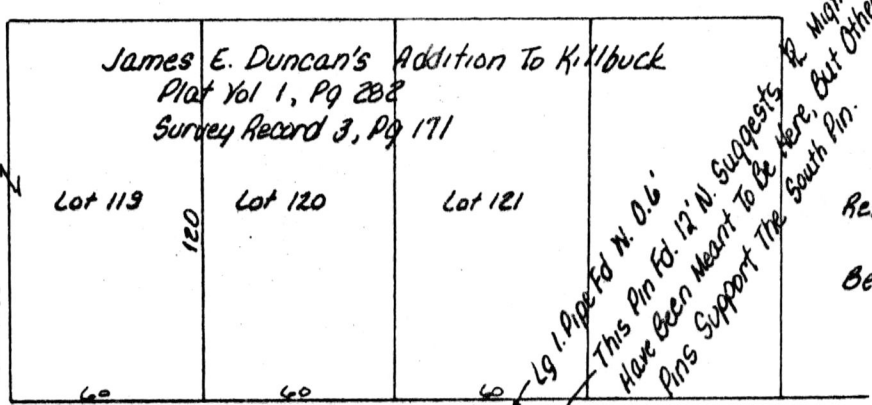 James E. Duncan's Addition To Killbuck
Plat Vol 1, Pg 282
Survey Record 3, Pg 171
Lot 119
120
Lot 120
Lot 121
60
60
60
Lg I. Pipe Fd N. 0.6'
This Pin Fd. 12' N. Suggests
Have Been Meant To Be Here, But Other
Pins Support The South Pin.